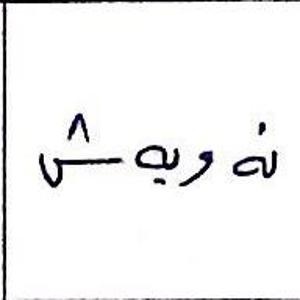 نەویەش